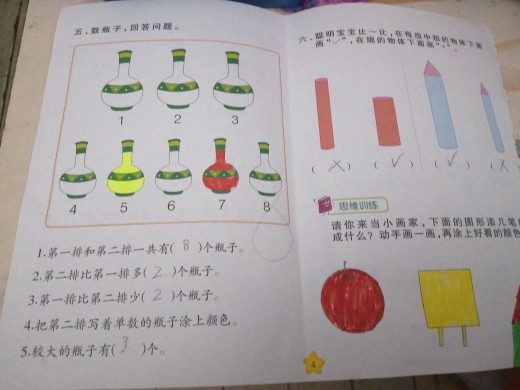 五、数瓶子，回答问题。
1 2 3
4 5 6 7 8
1.第一排和第二排一共有( 8 )个瓶子。
2.第二排比第一排多( 2 )个瓶子。
3.第一排比第二排少( 2 )个瓶子。
4.把第二排写着单数的瓶子涂上颜色。
5.较大的瓶子有( 3 )个。
六、聪明宝宝比一比，在每组中粗的物体下面
画“✓”，在细的物体下面画“×”。
( × ) ( ✓ ) ( ✓ ) ( × )
思维训练
请你来当小画家，下面的图形添几笔
成什么？动手画一画，再涂上好看的颜色
4